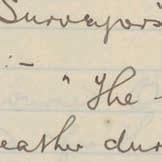 Surveyors
:-
" The -
eather dur